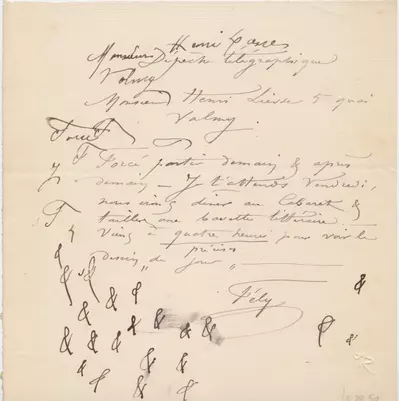 Monsieur Henri
Dépêche télégraphique
Valmy
Monsieur Henri Liesse 5 quai
Valmy.
Forcé
Forcé partir demain & après
demain — Je t'attends Vendredi,
nous irons dîner au Cabaret &
tailler une bavette littéraire
Viens à quatre heures pour voir le
précieux
dessin du jour
Fély
& &
& & &
& & & &
& & & & &
& & &
& & &